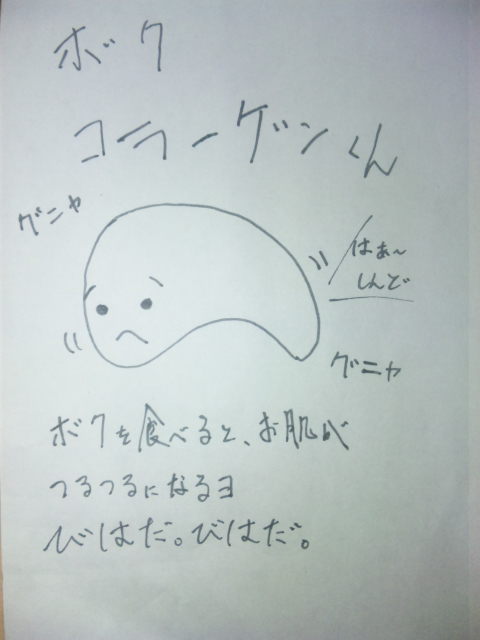 ボク
コラーゲンくん
グニャ
はぁ〜
しんど
グニャ
ボクを食べると、お肌が
つるつるになるヨ
びはだ。びはだ。